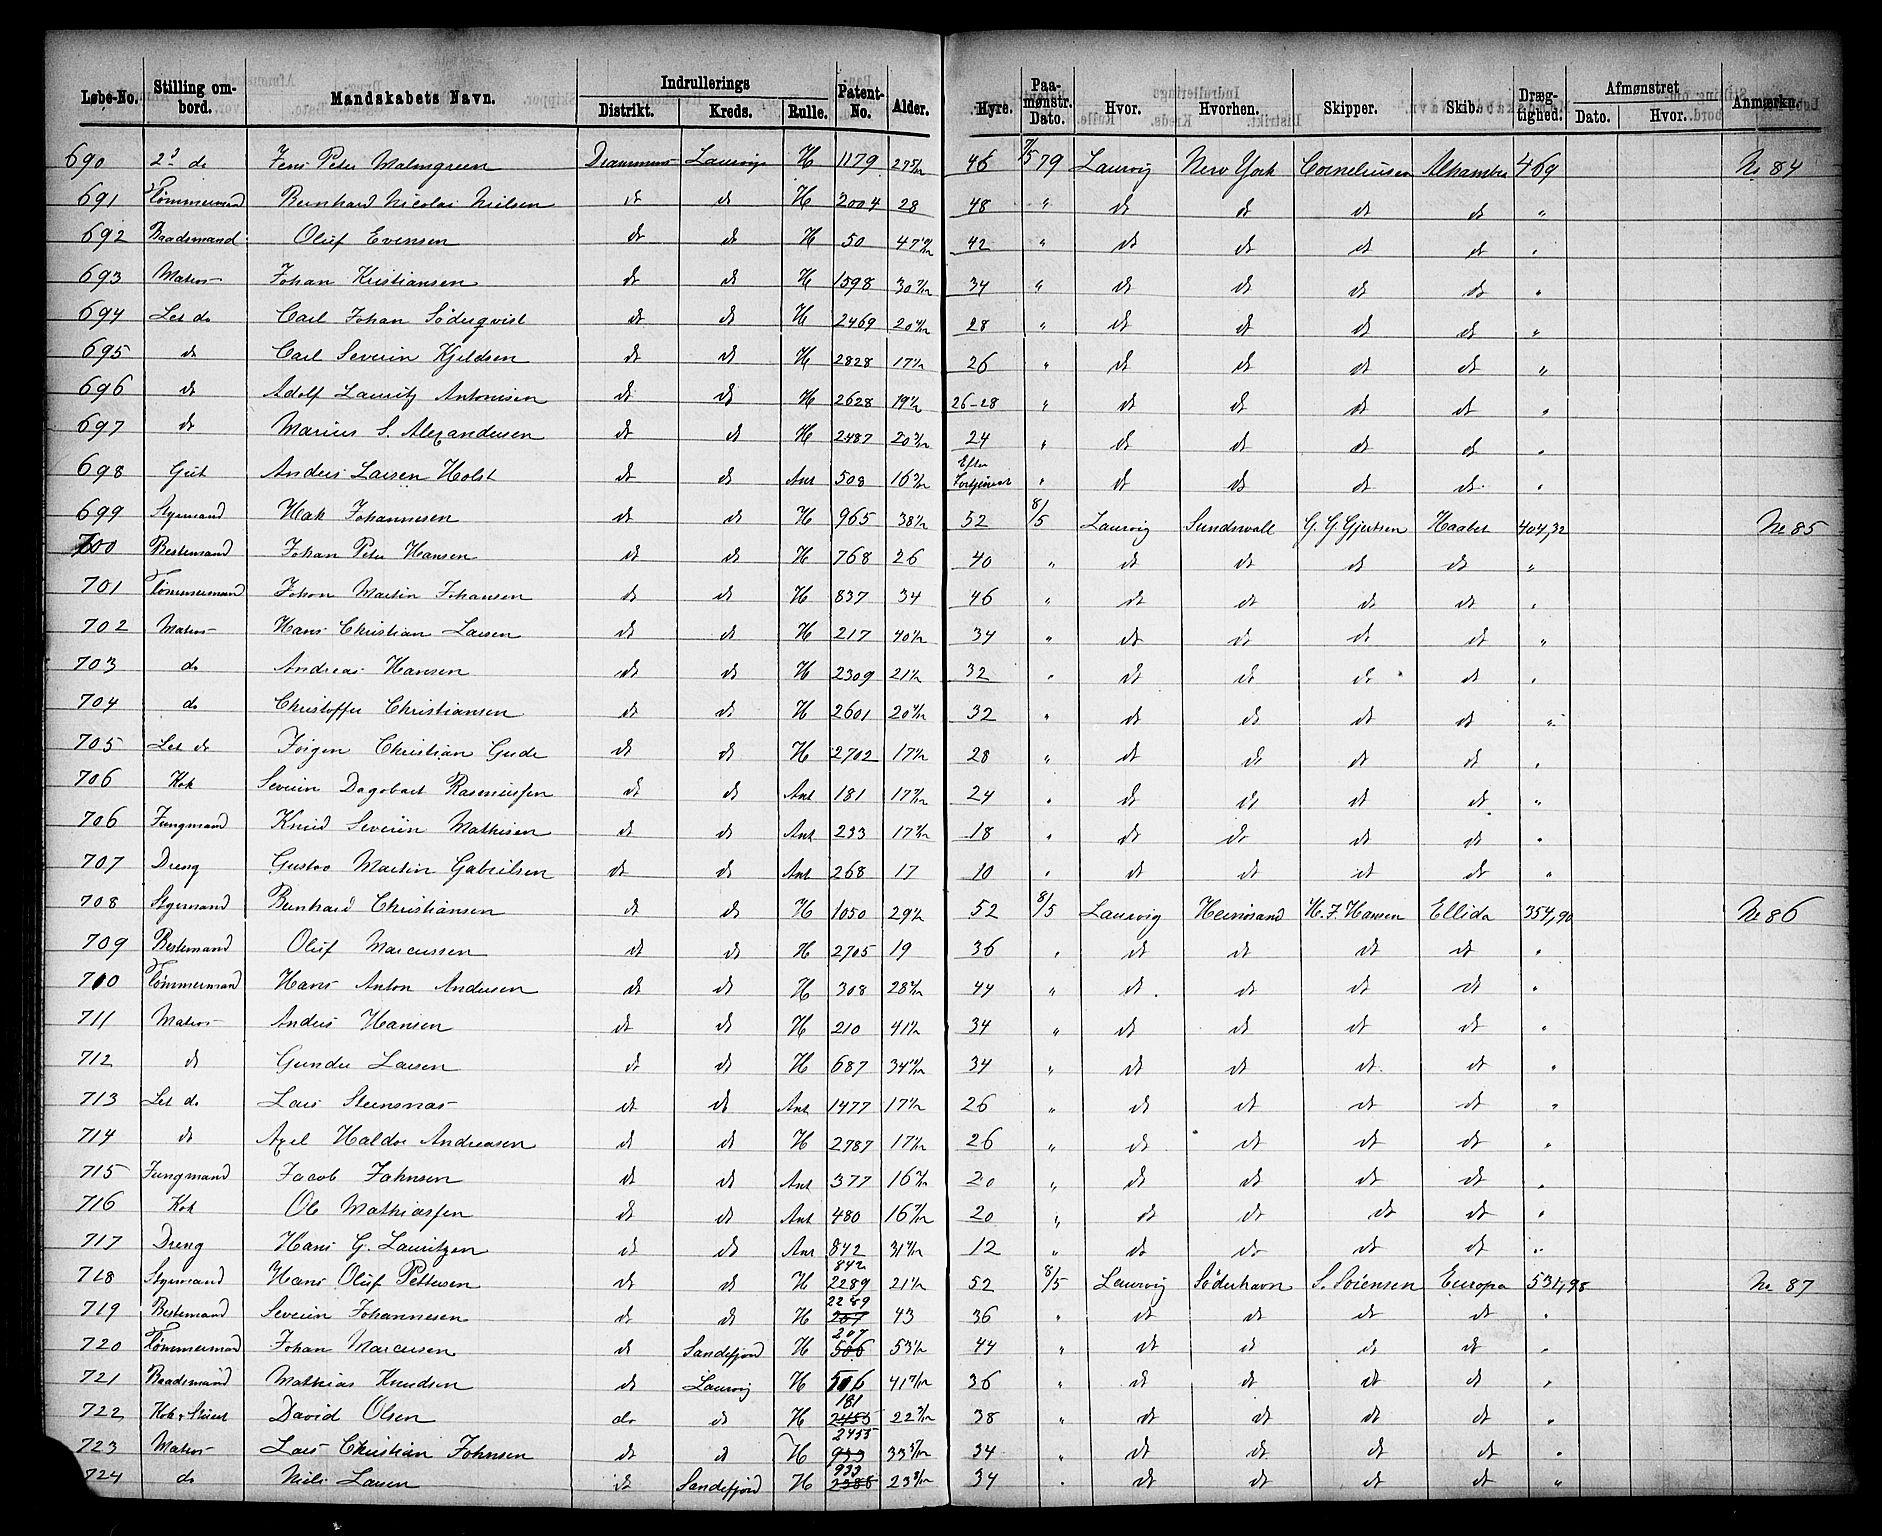 Løbe-No. Stilling ombord. Mandskabets Navn. Indrullerings Distrikt. Kreds. Rulle. Patent-No. Alder. Hyre. Paamønstr. Dato. Hvor. Hvorhen. Skipper. Skib. Drægtighed. Afmønstret Dato. Hvor. Anmærkn.
690 2d do Jens Peter Malmgreen Drammens Laurvigs H 1179 46 7/5 79 Laurvig New York Corneliussen Alhambra 469 No 84
691 Tømmermand Bernhard Nicolai Nielsen dt dt H 2004 28 48 " dt dt dt dt "
692 Baadsmand Oluf Evensen dt dt H 50 42 " dt dt dt dt "
693 Matros Johan Kristiansen dt dt H 1598 34 " dt dt dt dt "
694 Let do Carl Johan Söderqvist dt dt H 2469 28 " dt dt dt dt "
695 do Carl Severin Kjeldsen dt dt H 2828 26 " dt dt dt dt "
696 dt Adolf Lauritz Antonisen dt dt H 2628 26-28 " dt dt dt dt "
697 dt Marius S. Alexandersen dt dt H 2487 24 " dt dt dt dt "
698 Gut Anders Larsen Holst dt dt Ant 508 Efter Fortjeneste " dt dt dt dt "
699 Styrmand Hak Johannesen dt dt H 965 52 8/5 Laurvig Sundswall G. G. Gjertsen Haabet 404,32 No 85
700 Bestemand Johan Peter Hansen dt dt H 768 26 40 " dt dt dt dt "
701 Tømmermand Johan Martin Johansen dt dt H 837 34 46 " dt dt dt dt "
702 Matros Hans Christian Larsen dt dt H 217 34 " dt dt dt dt "
703 do Andreas Hansen dt dt H 2309 32 " dt dt dt dt "
704 do Christoffer Christiansen dt dt H 2601 32 " dt dt dt dt "
705 Let do Jörgen Christian Gude dt dt H 2702 28 " dt dt dt dt "
706 Kok Severin Dagobart Rasmussen dt dt Ant 181 24 " dt dt dt dt "
706 Jungmand Knud Severin Mathisen dt dt Ant 233 18 " dt do dt dt "
707 Dreng Gustav Martin Gabrilsen dt dt Ant 268 17 10 " dt dt dt dt "
708 Styrmand Bernhard Christiansen dt dt H 1050 52 8/5 Laurvig Hernösand H. J. Hansen Ellida 354,90 No 86
709 Bestemand Oluf Marcussen dt dt H 2705 19 36 " dt dt dt dt "
710 Tømmermand Hans Anton Andersen dt dt H 308 44 " dt dt dt dt "
711 Matros Anders Hansen dt dt H 210 34 " dt dt dt dt "
712 dt Gunder Larsen dt dt H 687 34 " dt dt dt dt "
713 Let do Lars Steensnæs dt dt Ant 1477 26 " dt dt dt dt "
714 dt Axel Haldor Andreasen dt dt H 2787 26 " dt dt dt dt "
715 Jungmand Jacob Johnsen dt dt Ant 377 20 " dt dt dt dt "
716 Kok Ole Mathiassen dt dt Ant 480 20 " dt dt dt dt "
717 Dreng Hans G. Lauritzen dt dt Ant 842 12 " do do dt dt "
718 Styrmand Hans Oluf Pettersen dt dt H 842 2289 52 8/5 Laurvig Söderhavn S. Sörensen Europa 531,98 No 87
719 Bestemand Severin Johannesen dt dt H 2289 207 43 36 " dt dt dt dt "
720 Tømmermand Johan Marcusen dt Sandefjord H 207 506 44 " dt dt dt dt "
721 Baadsmand Mathias Knudsen dt Laurvig H 506 36 " dt dt dt dt "
722 Kok & Stuert David Olsen do dt H 181 2455 38 " dt dt dt dt "
723 Matros Lars Christian Johnsen dt dt H 2455 933 34 " dt dt dt dt "
724 do Niels Larsen dt Sandefjord H 933 34 " dt dt dt dt "